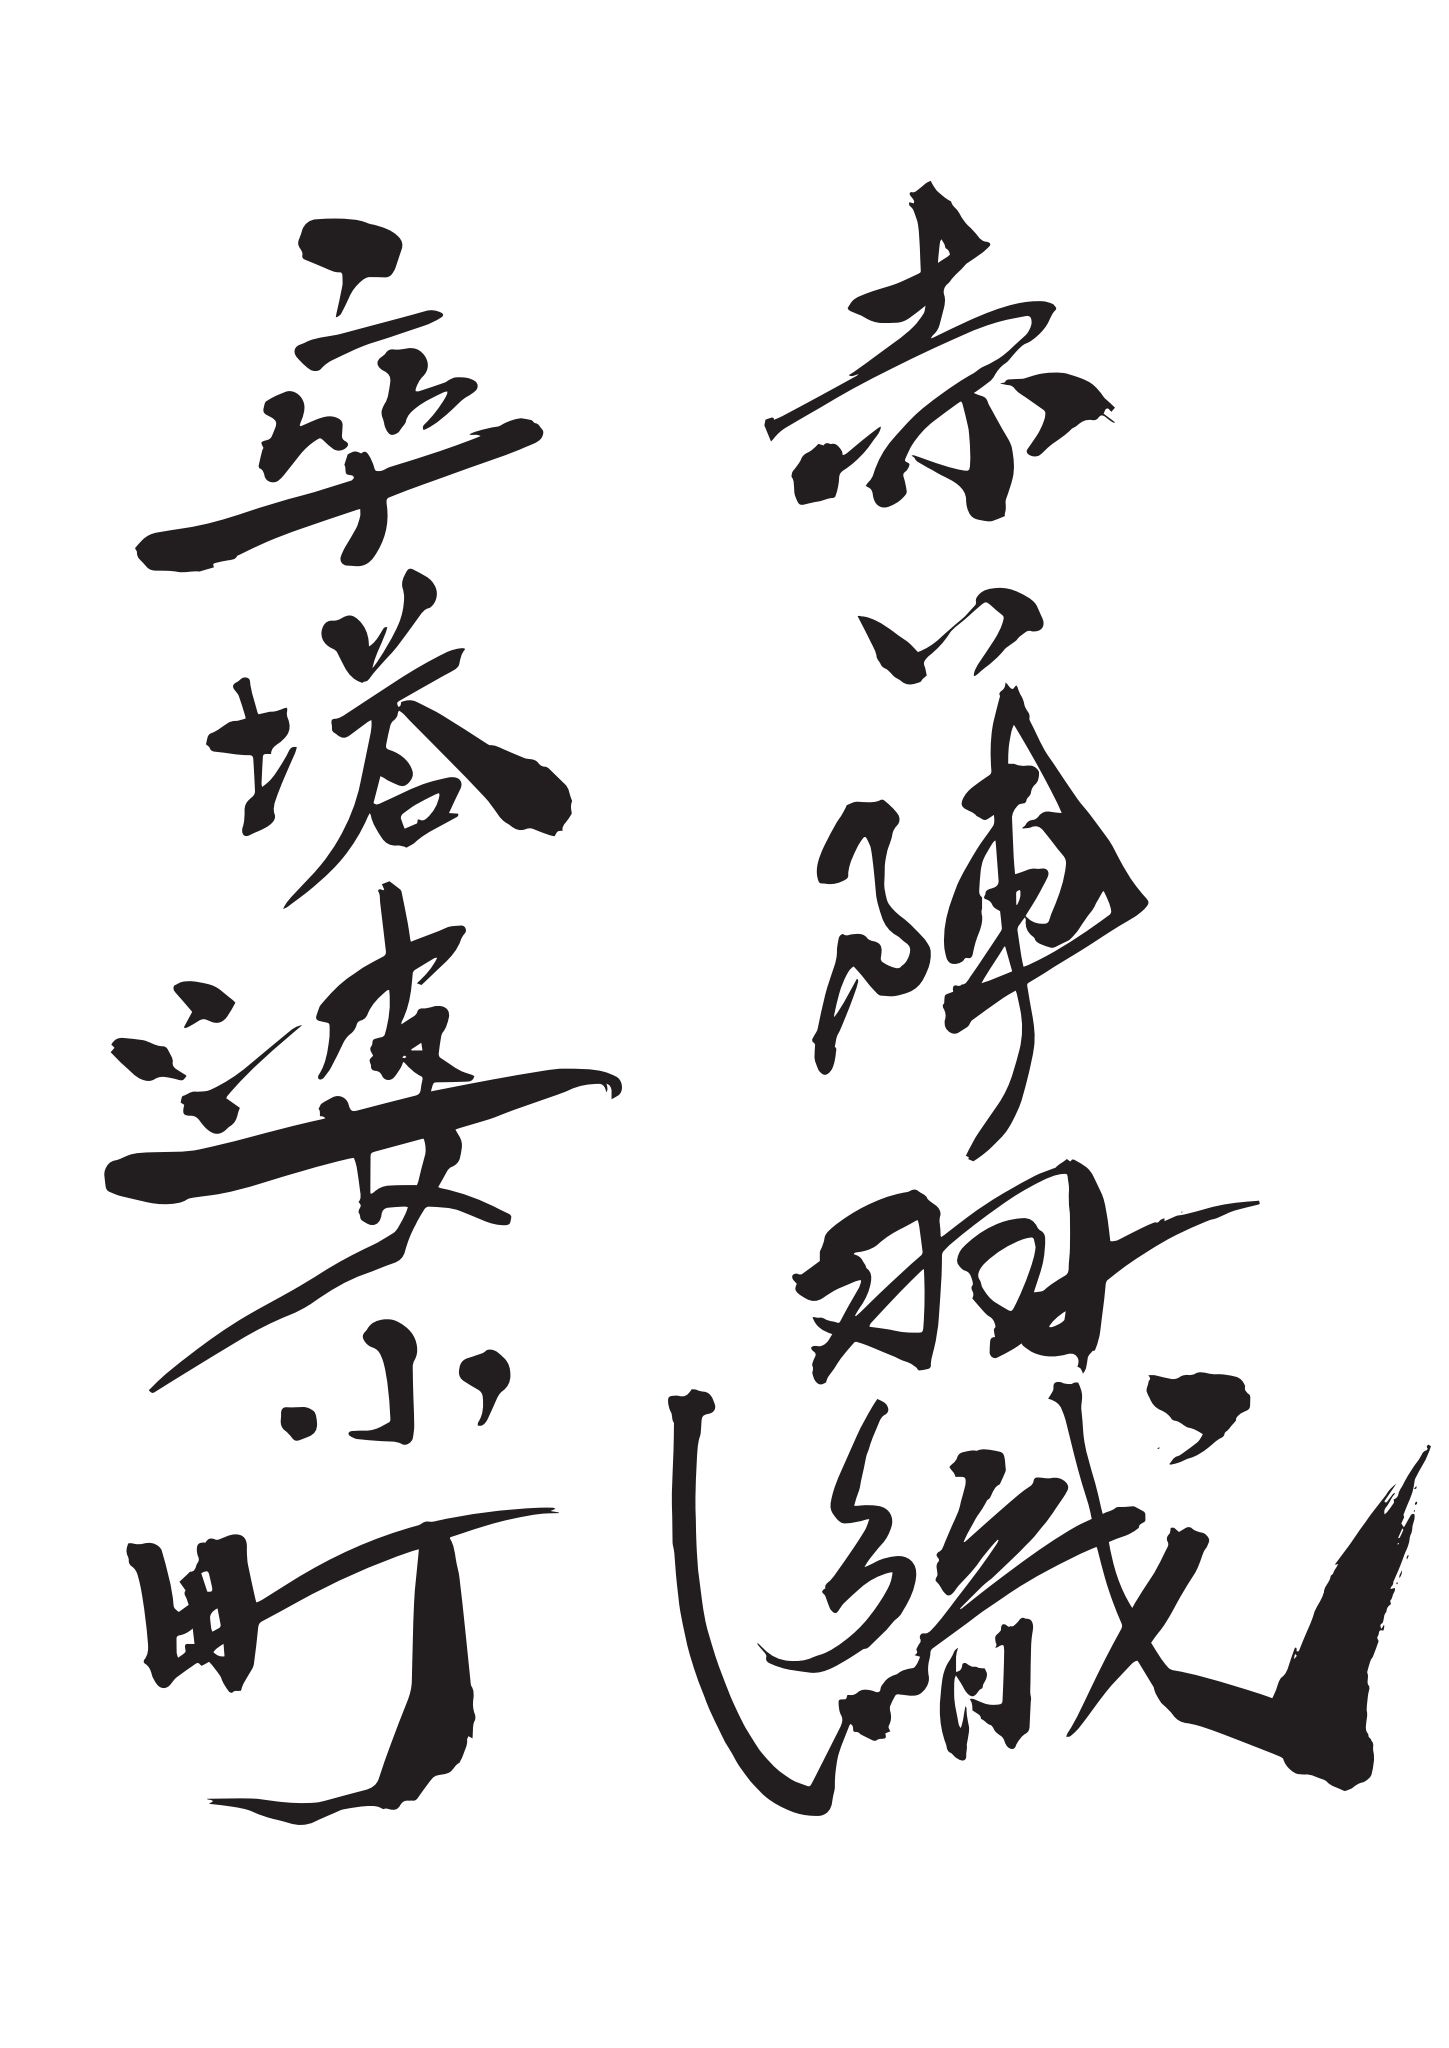 赤い陣羽織
卒塔婆小町